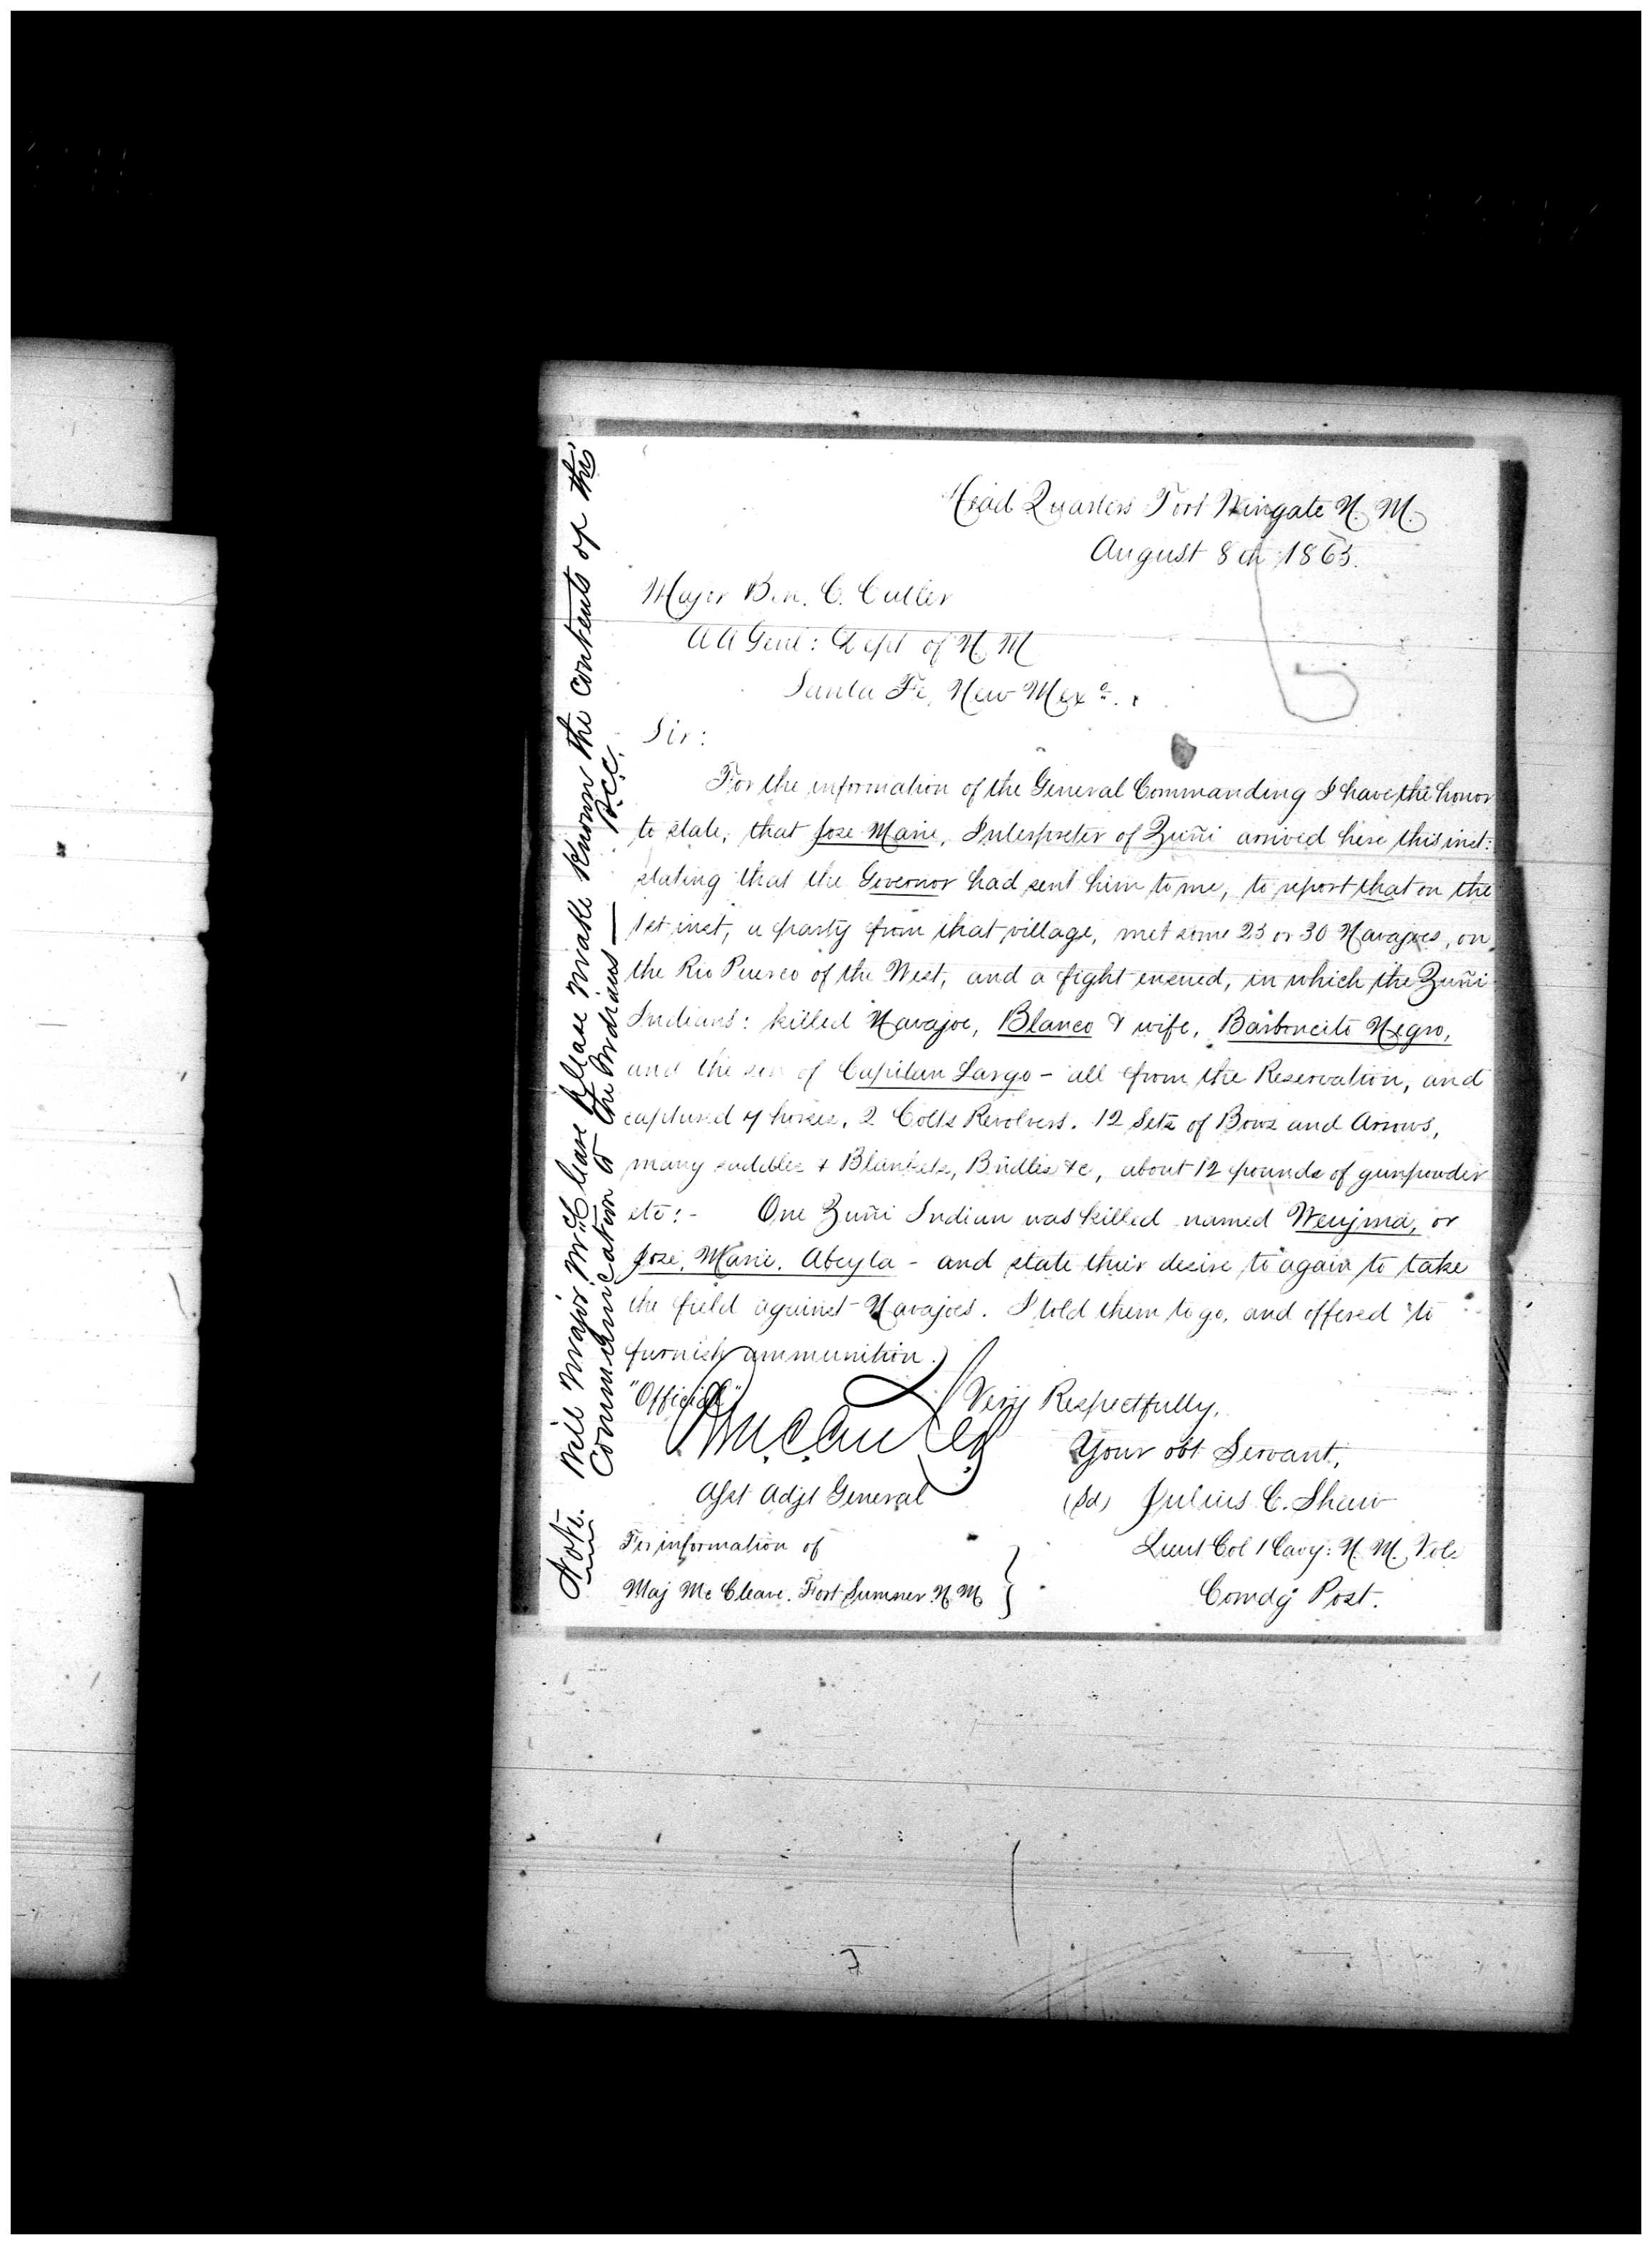 Head Quarters Fort Wingate N. M.
August 8th 1865.
Major Ben. C. Cutler
A A Genl: Dept of N. M
Santa Fe, New Mexo.
Sir:
For the information of the General Commanding I have the honor
to state, that Jose Marie, Interpreter of Zuñi arrived here this inst:
stating that the Governor had sent him to me, to report that on the
1st inst, a party from that village, met some 25 or 30 Navajoes, on
the Rio Puerco of the West, and a fight ensued, in which the Zuñi
Indians: killed Navajoe, Blanco & wife, Barboncito Negro,
and the son of Capitan Largo - all from the Reservation, and
captured 4 horses, 2 Colts Revolvers. 12 Sets of Bows and Arrows,
many saddles & Blankets, Bridles &c, about 12 pounds of gunpowder
etc:- One Zuñi Indian was killed named Weujma, or
Jose, Marie, Abeyta - and state their desire to again to take
the field against Navajoes. I told them to go, and offered to
furnish ammunition.
"Official" Very Respectfully,
Your obt Servant,
Asst Adjt General (Sd) Julius C. Shaw
For information of Lieut Col 1 Cavy: N. M. Vols
Maj Mc Cleave. Fort Sumner N. M Comdg Post.
Note. Will Major McCleave please make known the contents of this
communication to the Indians — B.C.C.